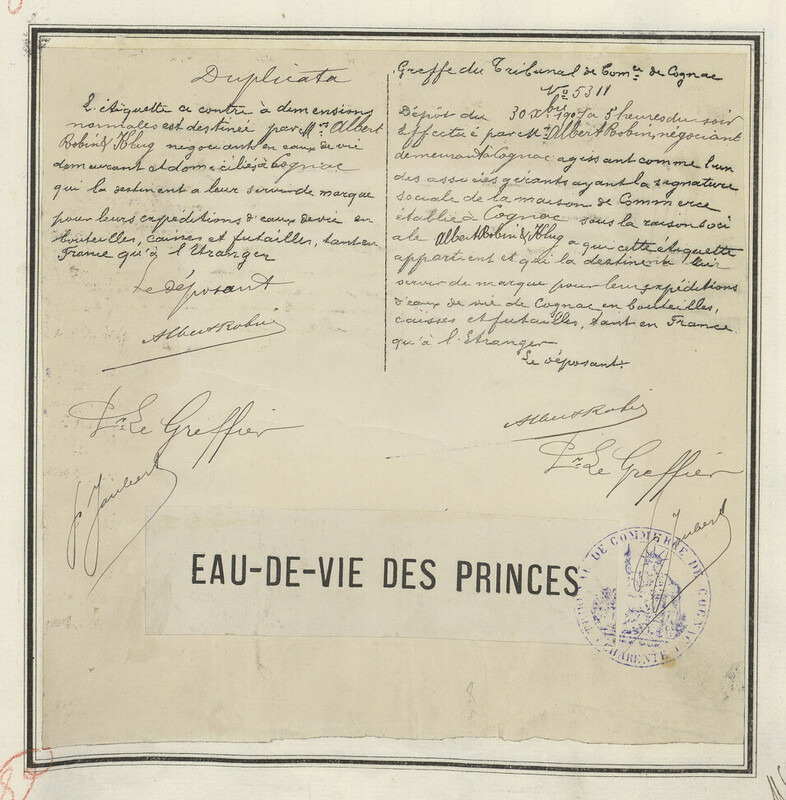 Duplicata
L'étiquette ci contre à demensions
normales est destinée par Mrs Albert
Robin & Klug négociant en eaux de vie
demeurant et domiciliés à Cognac
qui la destinent a leur servir de marque
pour leurs expéditions d'eaux de vie en
bouteilles, caisses et futailles, tant en
France qu'à l'Etranger
Le déposant
Albert Robin
Pr Le Greffier
Greffe du Tribunal de Comce de Cognac
No 5311
Dépôt du 30 Xbre 1907 à 5 heures du soir
Effectué par Mr Albert Robin, négociant
demeurant à Cognac agissant comme l'un
des associés gérants ayant la signature
sociale de la maison de Commerce
établie à Cognac sous la raison soci
ale Albert Robin & Klug a qui cette étiquette
appartient et qui la destine à lui
servir de marque pour leur expéditions
d'eaux de vie de Cognac en bouteilles,
caisses et futailles, tant en France
qu'à l'Etranger
Le déposant.
Albert Robin
Pr Le Greffier
EAU-DE-VIE DES PRINCES
TRIBUNAL DE COMMERCE DE COGNAC
CHARENTE